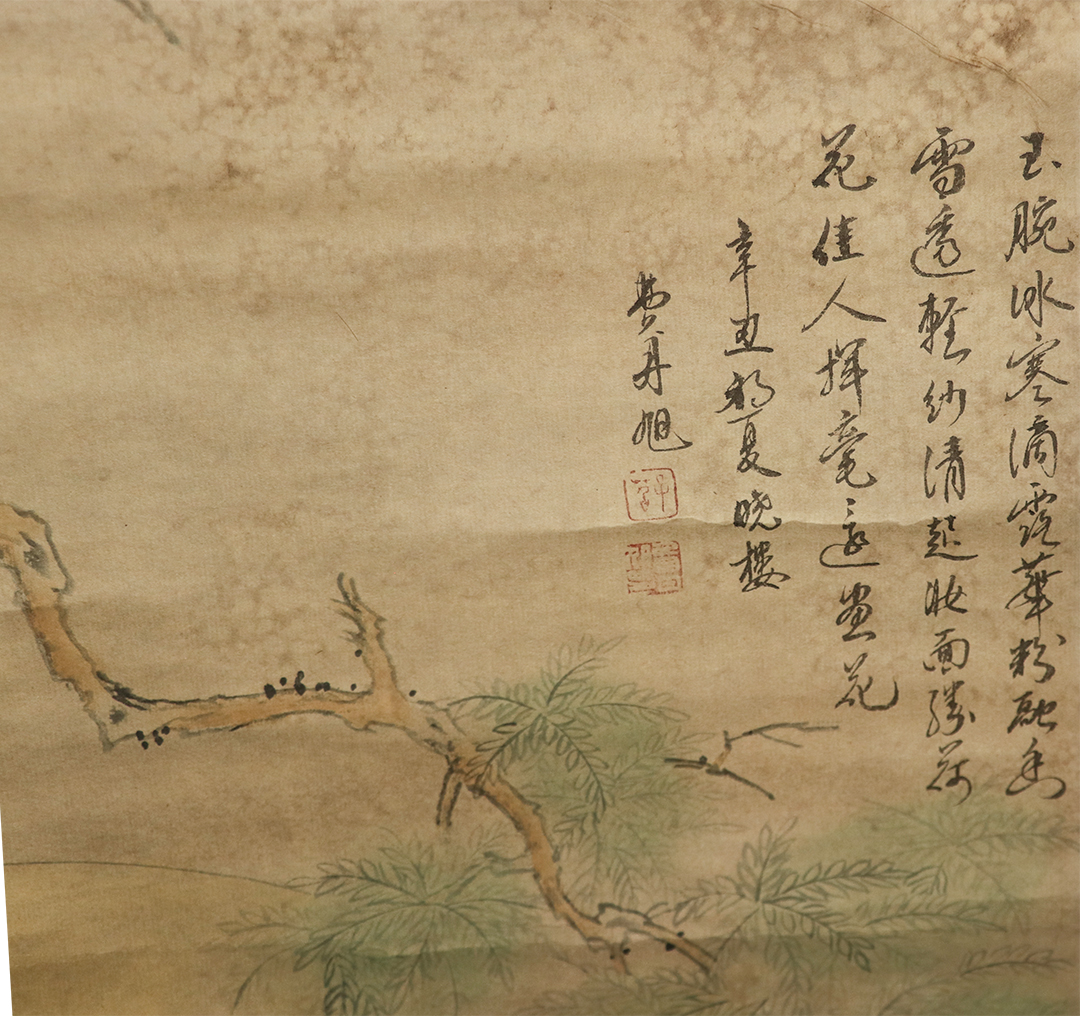 玉腕冰寒滴露華粉融香
雪透輕紗清起妝面勝荷
花佳人揮毫意畫花
辛丑初夏曉樓
費丹旭